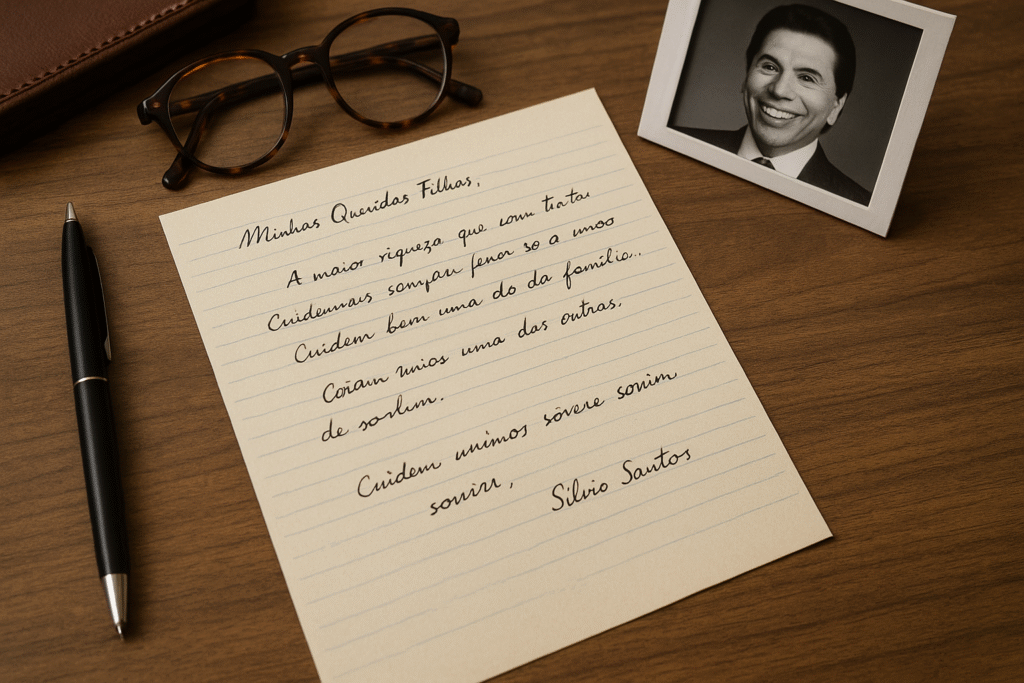 Minhas Queridas Filhas,
A maior riqueza que com tratar
Cuidemais sempau fenor so a unoo
Cuidem bem uma do da família..
Coríam unios uma das outras,
de sorlum.
Cuidem unímos sòvere soním
sonirr,
Silvio Santos